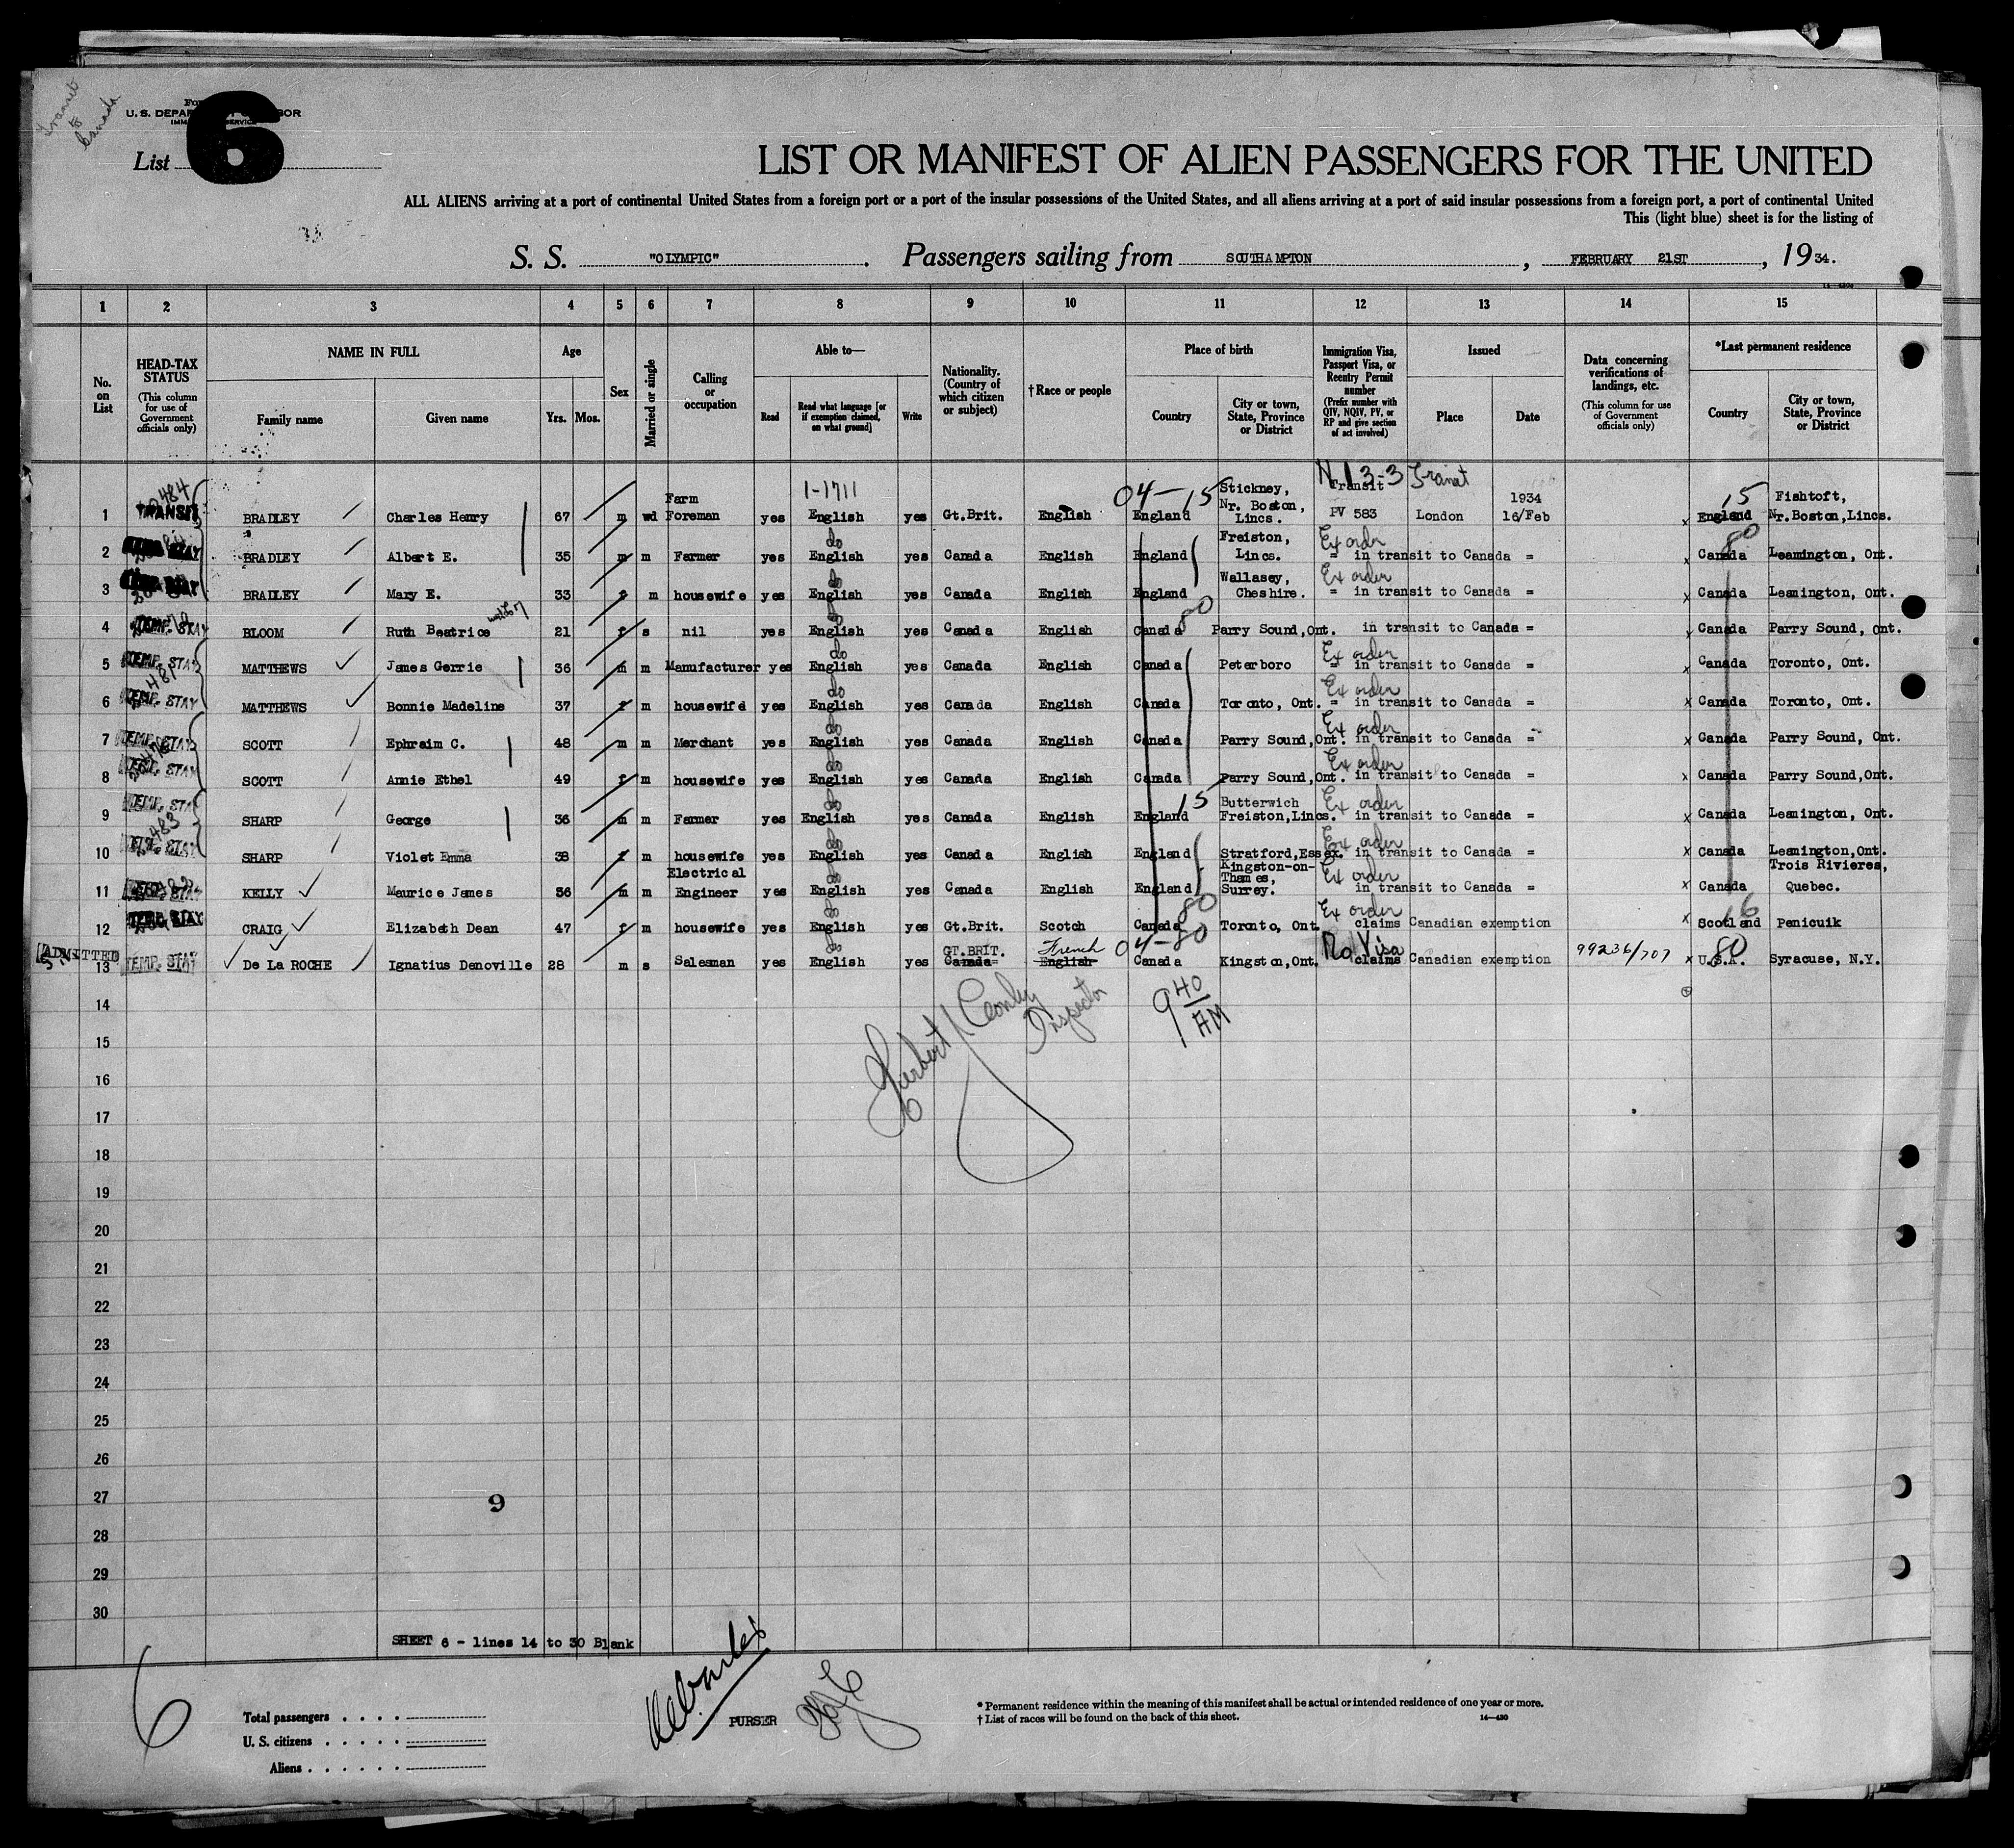 Transit
to
Canada
U. S. DEPAR BOR
6
List
LIST OR MANIFEST OF ALIEN PASSENGERS FOR THE UNITED
ALL ALIENS arriving at a port of continental United States from a foreign port or a port of the insular possessions of the United States, and all aliens arriving at a port of said insular possessions from a foreign port, a port of continental United
This (light blue) sheet is for the listing of
S. S. "OLYMPIC" . Passengers sailing from SOUTHAMPTON , FEBRUARY 21ST , 1934.
1 2 3 4 5 6 7 8 9 10 11 12 13 14 15
No. on List
HEAD-TAX STATUS (This column for use of Government officials only)
NAME IN FULL Family name Given name
Age Yrs. Mos.
Sex
Married or single
Calling or occupation
Able to— Read Read what language [or if exemption claimed, on what ground] Write
Nationality. (Country of which citizen or subject)
†Race or people
Place of birth Country City or town, State, Province or District
Immigration Visa, Passport Visa, or Reentry Permit number (Prefix number with QIV, NQIV, PV, or RP and give section of act involved)
Issued Place Date
Data concerning verifications of landings, etc. (This column for use of Government officials only)
*Last permanent residence Country City or town, State, Province or District
1 TRANSIT BRADLEY Charles Henry 67 m wd Farm Foreman yes 1-1711 English yes Gt.Brit. English 04-15 England Stickney, Nr. Boston, Lincs. N 1 3-3 Transit Transit PV 583 London 1934 16/Feb x 15 England Fishtoft, Nr.Boston,Lincs.
2 BRADLEY Albert E. 35 m m Farmer yes do English yes Canada English England Freiston, Lincs. Ex order = in transit to Canada = x 80 Canada Leamington, Ont.
3 BRADLEY Mary E. 33 f m housewife yes do English yes Canada English England Wallasey, Cheshire. Ex order = in transit to Canada = x Canada Leamington, Ont.
4 TEMP. STAY BLOOM Ruth Beatrice 21 f s nil yes do English yes Canada English Canada 80 Parry Sound,Ont. in transit to Canada = x Canada Parry Sound, Ont.
5 TEMP. STAY MATTHEWS James Gerrie 36 m m Manufacturer yes do English yes Canada English Canada Peterboro Ex order = in transit to Canada = x Canada Toronto, Ont.
6 TEMP. STAY MATTHEWS Bonnie Madeline 37 f m housewife yes do English yes Canada English Canada Toronto, Ont. Ex order = in transit to Canada = x Canada Toronto, Ont.
7 TEMP. STAY SCOTT Ephraim C. 48 m m Merchant yes do English yes Canada English Canada Parry Sound,Ont. Ex order in transit to Canada = x Canada Parry Sound, Ont.
8 TEMP. STAY SCOTT Annie Ethel 49 f m housewife yes do English yes Canada English Canada Parry Sound,Ont. Ex order in transit to Canada = x Canada Parry Sound,Ont.
9 TEMP. STA SHARP George 36 m m Farmer yes do English yes Canada English 15 England Butterwich Freiston,Lincs. Ex order in transit to Canada = x Canada Leamington, Ont.
10 SHARP Violet Emma 38 f m housewife yes do English yes Canada English England Stratford,Essex. Ex order in transit to Canada = x Canada Leamington,Ont.
11 KELLY Maurice James 36 m m Electrical Engineer yes do English yes Canada English England Kingston-on-Thames, Surrey. Ex order in transit to Canada = x Canada Trois Rivieres, Quebec.
12 CRAIG Elizabeth Dean 47 f m housewife yes do English yes Gt.Brit. Scotch 80 Canada Toronto, Ont Ex order claims Canadian exemption x 16 Scotland Penicuik
ADMITTED 13 TEMP. STAY De La ROCHE Ignatius Denoville 28 m s Salesman yes do English yes GT.BRIT. Canada= French English 04-80 Canada Kingston,Ont. No Visa claims Canadian exemption 99236/707 x 80 U.S.A. Syracuse, N.Y.
14
15
16
17
18
19
20
21
22
23
24
25
26
27
28
29
30
Inspector
9 40 AM
9
SHEET 6 - lines 14 to 30 Blank
6
Total passengers
U. S. citizens
Aliens
PURSER
* Permanent residence within the meaning of this manifest shall be actual or intended residence of one year or more.
† List of races will be found on the back of this sheet. 14—430